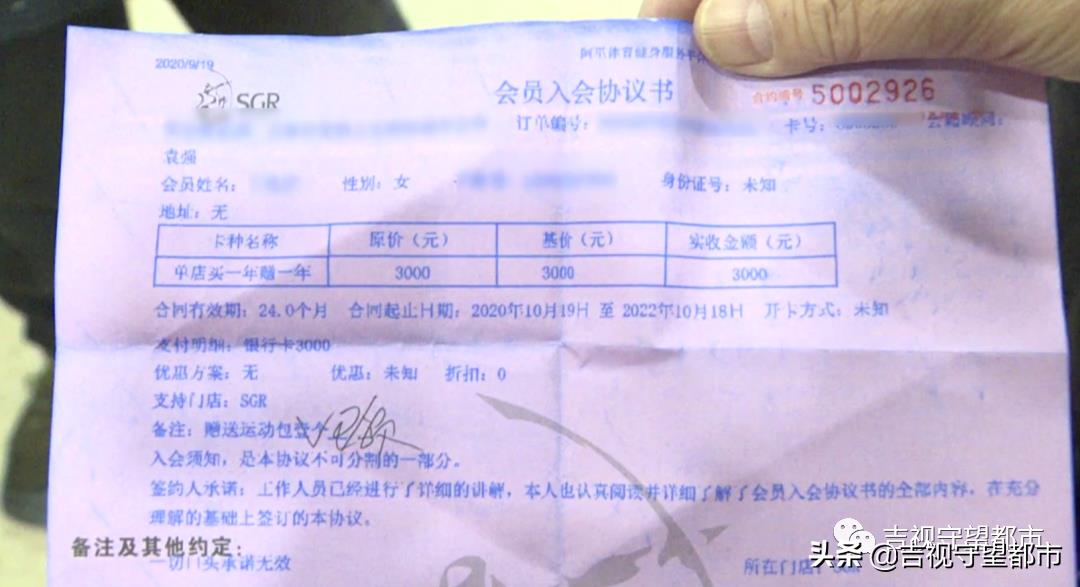 2020/9/19
阿里体育健身服务平
SGR
会员入会协议书
合约编号 5002926
订单编号：
卡号：
会籍顾问：
袁强
会员姓名：
性别：女
身份证号：未知
地址：无
卡种名称 原价（元） 基价（元） 实收金额（元）
单店买一年赠一年 3000 3000 3000
合同有效期：24.0个月 合同起止日期：2020年10月19日 至 2022年10月18日 开卡方式：未知
支付明细：银行卡3000
优惠方案：无 优惠：未知 折扣：0
支持门店：SGR
备注：赠送运动包壹个
入会须知，是本协议不可分割的一部分。
签约人承诺：工作人员已经进行了详细的讲解，本人也认真阅读并详细了解了会员入会协议书的全部内容，在充分
理解的基础上签订的本协议。
备注及其他约定：
一切口头承诺无效
所在门店：
吉视守望都市
头条 @吉视守望都市